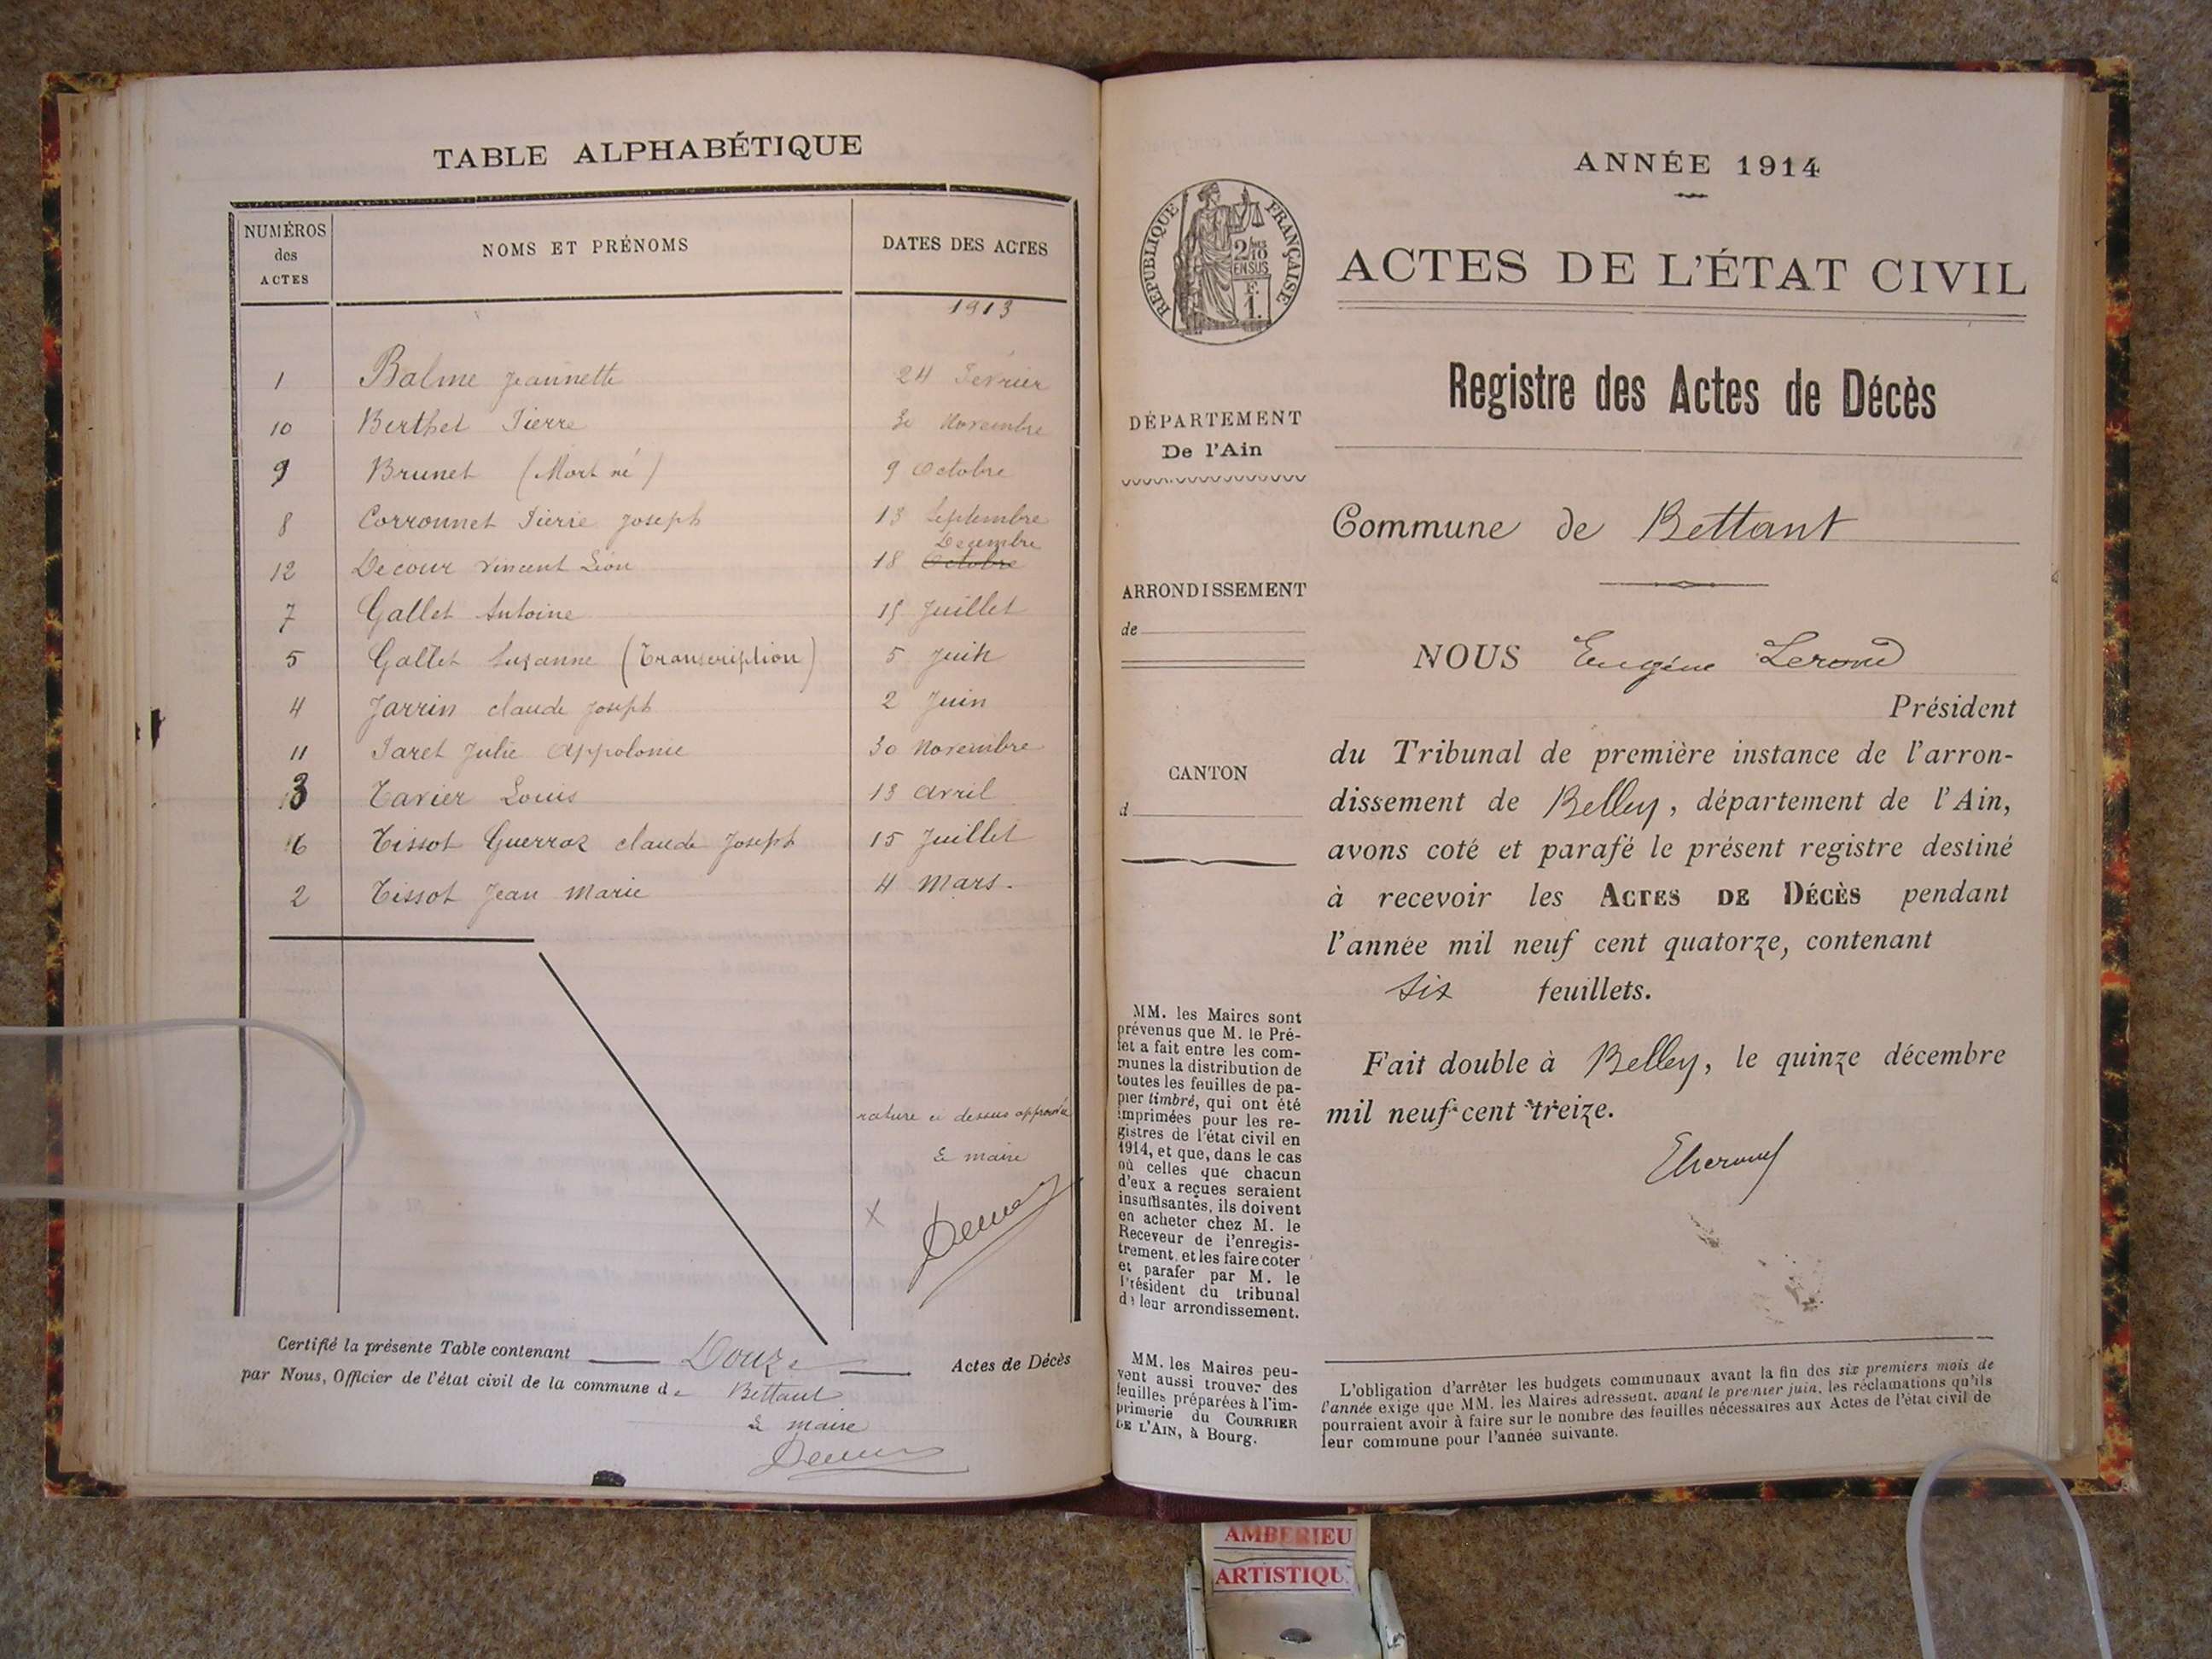 TABLE ALPHABÉTIQUE
NUMÉROS des ACTES NOMS ET PRÉNOMS DATES DES ACTES
1913
1 Balme Jeannette 24 Février
10 Berthet Pierre 30 Novembre
9 Brunet (Mort né) 9 Octobre
8 Corronnet Pierre Joseph 13 Septembre
Decembre
12 Decour Vincent Léon 18 Octobre
7 Gallet Antoine 15 Juillet
5 Gallet Suzanne (Transcription) 5 Juin
4 Jarrin claude Joseph 2 Juin
11 Paret Julie Appolonie 30 Novembre
3 Tavier Louis 13 Avril
6 Tissot Guerraz claude Joseph 15 Juillet
2 Tissot Jean Marie 4 Mars.
rature ci dessus approuvée
Le maire
X
Certifié la présente Table contenant Douze Actes de Décès
par Nous, Officier de l'état civil de la commune de Bettant
Le maire
ANNÉE 1914
RÉPUBLIQUE FRANÇAISE
2/10
EN SUS
F.
1.
ACTES DE L'ÉTAT CIVIL
Registre des Actes de Décès
DÉPARTEMENT
De l'Ain
Commune de Bettant
ARRONDISSEMENT
de
NOUS Eugène
Président
du Tribunal de première instance de l'arron-
dissement de Belley, département de l'Ain,
avons coté et parafé le présent registre destiné
à recevoir les ACTES DE DÉCÈS pendant
l'année mil neuf cent quatorze, contenant
six feuillets.
Fait double à Belley, le quinze décembre
mil neuf cent treize.
CANTON
d
MM. les Maires sont
prévenus que M. le Pré-
fet a fait entre les com-
munes la distribution de
toutes les feuilles de pa-
pier timbré, qui ont été
imprimées pour les re-
gistres de l'état civil en
1914, et que, dans le cas
où celles que chacun
d'eux a reçues seraient
insuffisantes, ils doivent
en acheter chez M. le
Receveur de l'enregis-
trement, et les faire coter
et parafer par M. le
Président du tribunal
de leur arrondissement.
MM. les Maires peu-
vent aussi trouver des
feuilles préparées à l'im-
primerie du COURRIER
DE L'AIN, à Bourg.
L'obligation d'arrêter les budgets communaux avant la fin des six premiers mois de
l'année exige que MM. les Maires adressent, avant le premier juin, les réclamations qu'ils
pourraient avoir à faire sur le nombre des feuilles nécessaires aux Actes de l'état civil de
leur commune pour l'année suivante.
AMBERIEU
ARTISTIQU